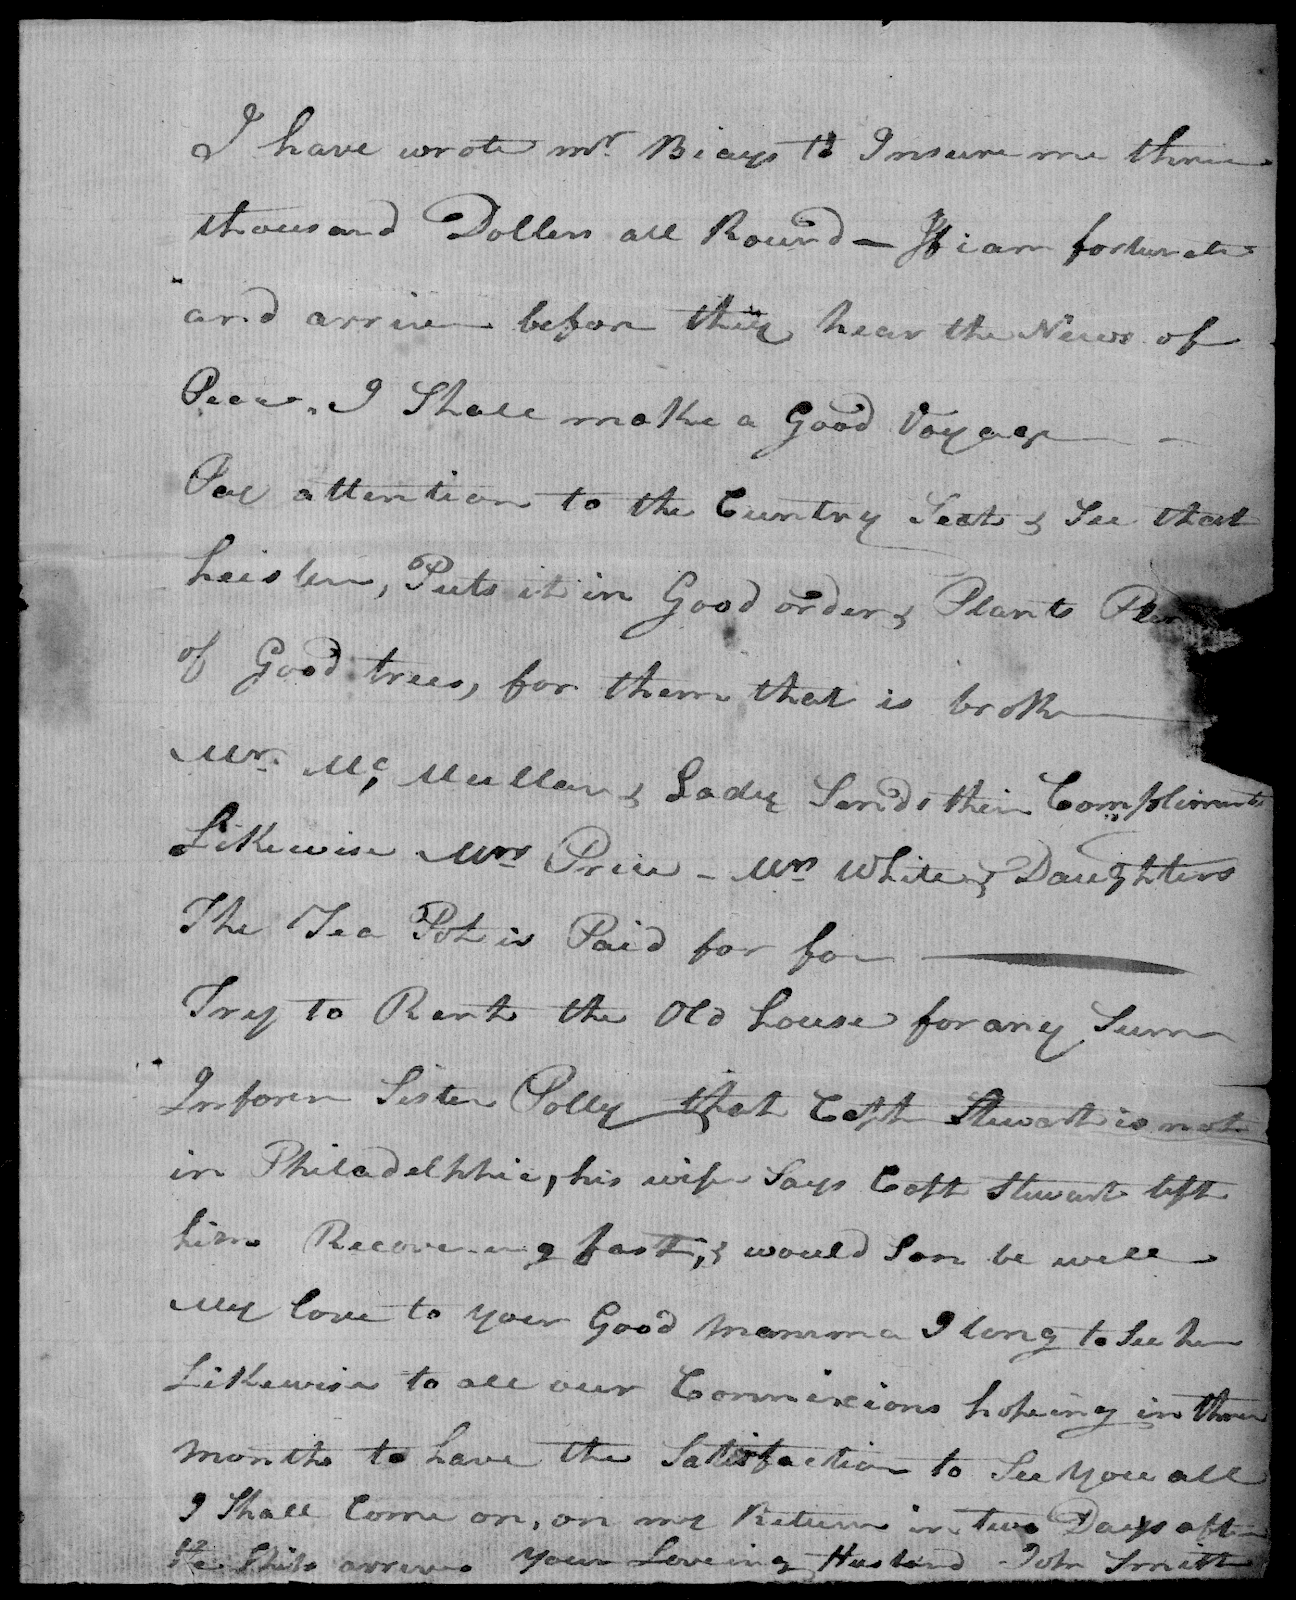 I have wrote mr. Biays to Insure me three
thousand Dollers all Round — If i am fortunate
and arrive before they hear the News of
Peace. I Shall make a Good Voyage —
Pay attention to the Cuntry Seat & See that
heisler, Puts it in Good order & Plants
of Good trees, for them that is broke
Mr. Mc Mullan & Lady Sends their Compliments
Likewise Mrs Price - Mrs White & Daughters
The Tea Pot is Paid for for —
Try to Rent the Old house for any Sum
Inform Sister Polly that Capt Stewart is not
in Philadelphia, his wife Says Capt Stewart left
him Recovering fast, & would Son be well
My love to your Good mamma I long to See her
Likewise to all our Connixions hopeing in three
months to have the Satisfaction to See You all
I Shall Come on, on my Return in two Days after
the Ship arrives Your Loveing Husband John Smith